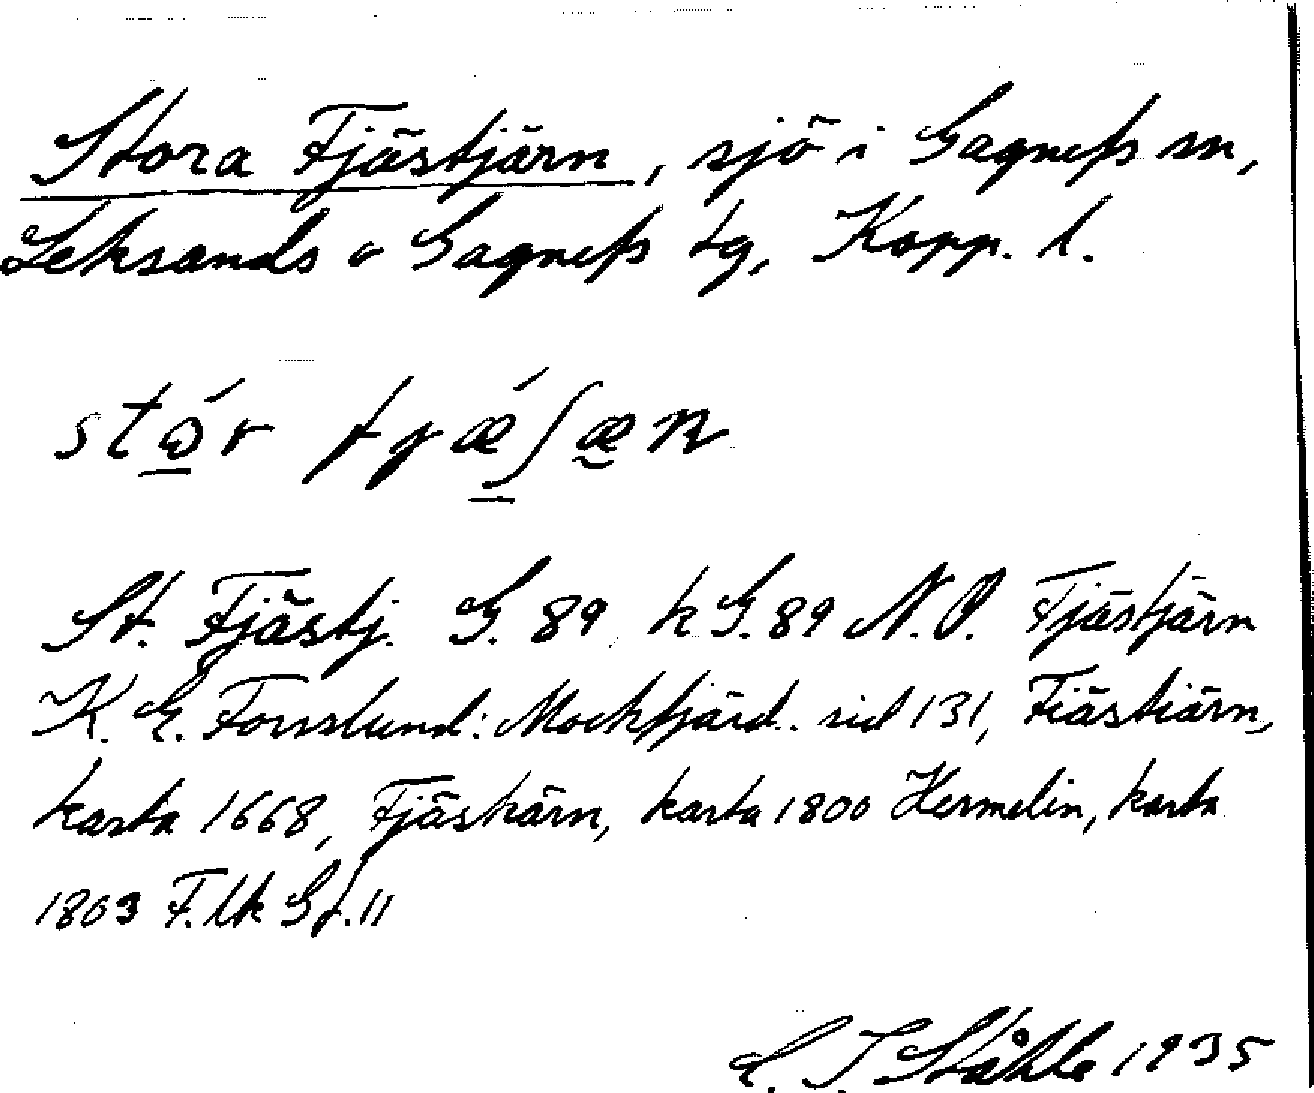 Stora Fjästjärn, sjö i Gagnefs sn,
Leksands o Gagnefs tg, Kopp. l.
St. Fjästj. G. 89 k G. 89 N.O. Fjästjärn
K. E. Forsslund: Mockfjärd. sid 131, Fiästiärn,
karta 1668, Fjäskärn, karta 1800 Hermelin, karta
1803 F.lk Gf. 11
C. I. Ståhle 1935